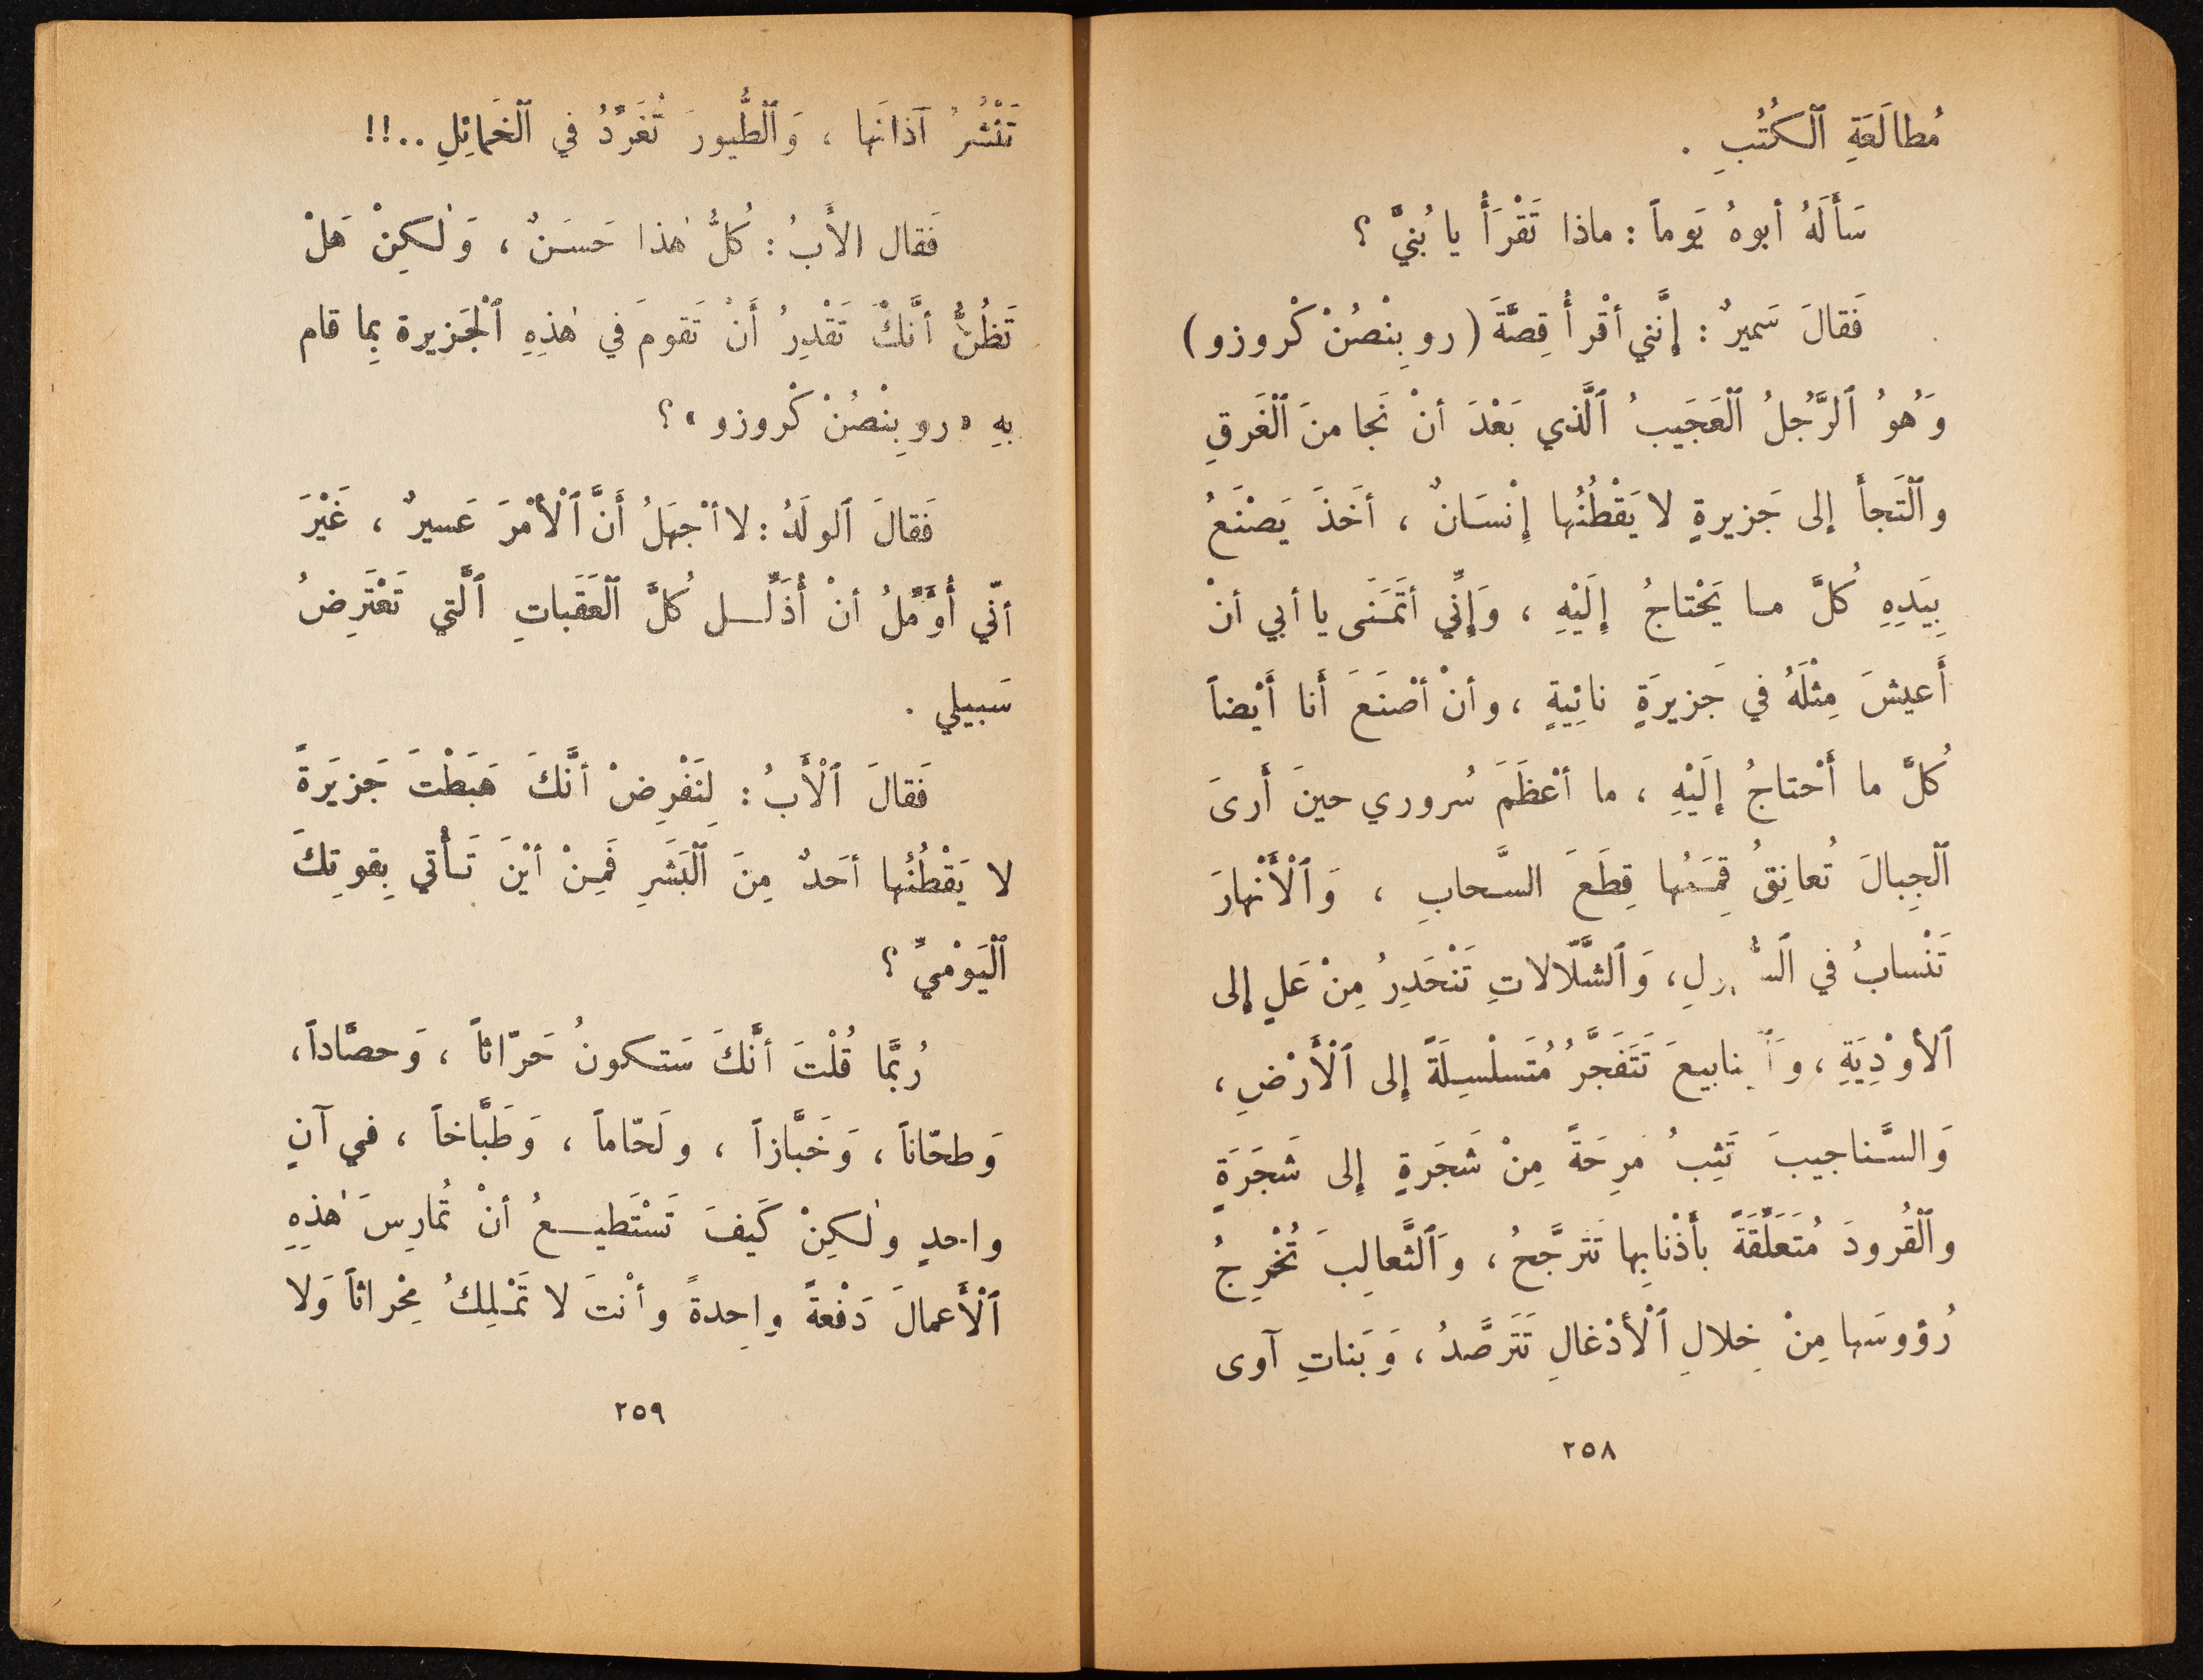 مُطالَعَةِ ٱلكُتُبِ .
سَأَلَهُ أبوهُ يَوماً : ماذا تَقْرَأُ يا بُنيَّ ؟
فَقالَ سَميرٌ : إنَّني أقْرأُ قِصَّةَ ( روبِنْصُنْ كْروزو )
وَهُوُ ٱلرَّجُلُ ٱلْعَجَيبُ ٱلَّذي بَعْدَ أنْ نَجا منَ ٱلْغَرقِ
وٱلْتَجأَ إلى جَزيرةٍ لا يَقْطُنُها إنْسَانٌ ، أخَذَ يَصْنَعُ
بِيَدِهِ كُلَّ ما يَحْتاجُ إلَيْهِ ، وَإنِّي أتَمَنَى يا أبي أنْ
أَعيشَ مِثْلَهُ في جَزيرَةٍ نائِيَةٍ ، وأنْ أصْنَعَ أَنا أَيْضاً
كُلَّ ما أَحْتاجُ إلَيْهِ ، ما أعْظَمَ سُروري حينَ أَرىَ
ٱلْجِبالَ تُعانِقُ قِمَمُها قِطَعَ السَّحابِ ، وَٱلْأَنْهارَ
تَنْسابُ في ، وَٱلشَّلّالاتِ تَنْحَدِرُ مِنْ عَلٍ إلى
ٱلأوْدِيَةِ ، تَتَفَجَّرُ مُتَسلْسِلَةً إلى ٱلْأَرْضِ ،
وَالسَّناجيبَ تَثِبُ مَرِحَةً مِنْ شَجَرةٍ إلى شَجَرَةٍ
وٱلْقُرودَ مُتَعَلِّقَةً بأَذْنابِها تَتَرجَّحُ ، وَٱلثَّعالِبَ تُخْرِجُ
رُؤوسَها مِنْ خِلالِ ٱلْأدْغالِ تَتَرصَّدُ ، وَبَناتِ آوى
٢٥٨
تَنْشُرُ آذانَها ، وَٱلْطُّيورَ تُغَرِّدُ في ٱلْخَمائِلِ ..!!
فَقال الأَبُ : كُلُّ هٰذا حَسَنٌ ، وَلٰكِنْ هَلْ
تَظُنُّ أنَّكَ تَقْدِرُ أَنْ تَقومَ في هٰذِهِ ٱلْجَزيرة بِما قام
بهِ « روبِنْصُنْ كْروزو » ؟
فَقالَ ٱلولَدُ : لا أجْهَلُ أَنَّ ٱلْأمْرَ عَسيرٌ ، غَيْرَ
أنّي أُؤَمِّلُ أنْ أُذَلِّل كُلَّ ٱلْعَقَباتِ ٱلَّتي تَعْتَرِضُ
سَبيلي .
فَقالَ ٱلْأَبُ : لِنَفْرِضْ أنَّكَ هَبَطْتَ جَزيَرةً
لا يَقْطُنُها أحَدٌ مِنَ ٱلْبَشَرِ فَمِنْ أيْنَ تَأْتي بِقوتِكَ
ٱلْيَوْميِّ ؟
رُبَّما قُلْتَ أنَّكَ سَتكونُ حَرّاثاً ، وَحصَّاداً ،
وَطحّاناً ، وَخَبَّازاً ، ولَحّاماً ، وَطَبَّاخاً ، في آنٍ
واحدٍ ولٰكِنْ كَيفَ تَسْتَطيعُ أنْ تُمارِسَ هٰذِهِ
ٱلْأَعمالَ دَفْعةً واحِدةً وأنْتَ لا تَمْلِكُ مِحْراثاً وَلا
٢٥٩